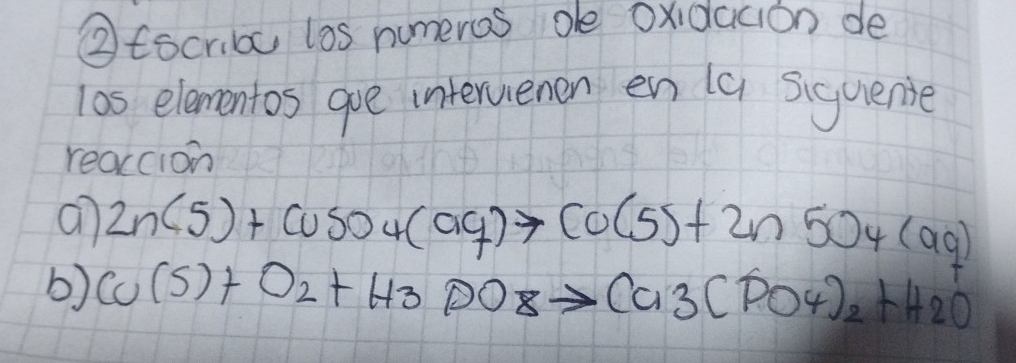 ② Escriba los numeros de oxidación de
los elementos que intervienen en la siguiente
reacción
a) Zn(s) + CuSO4(aq) → Cu(s) + Zn SO4 (aq)
b) Cu(s) + O2 + H3 PO8 → Ca3(PO4)2 + H2O